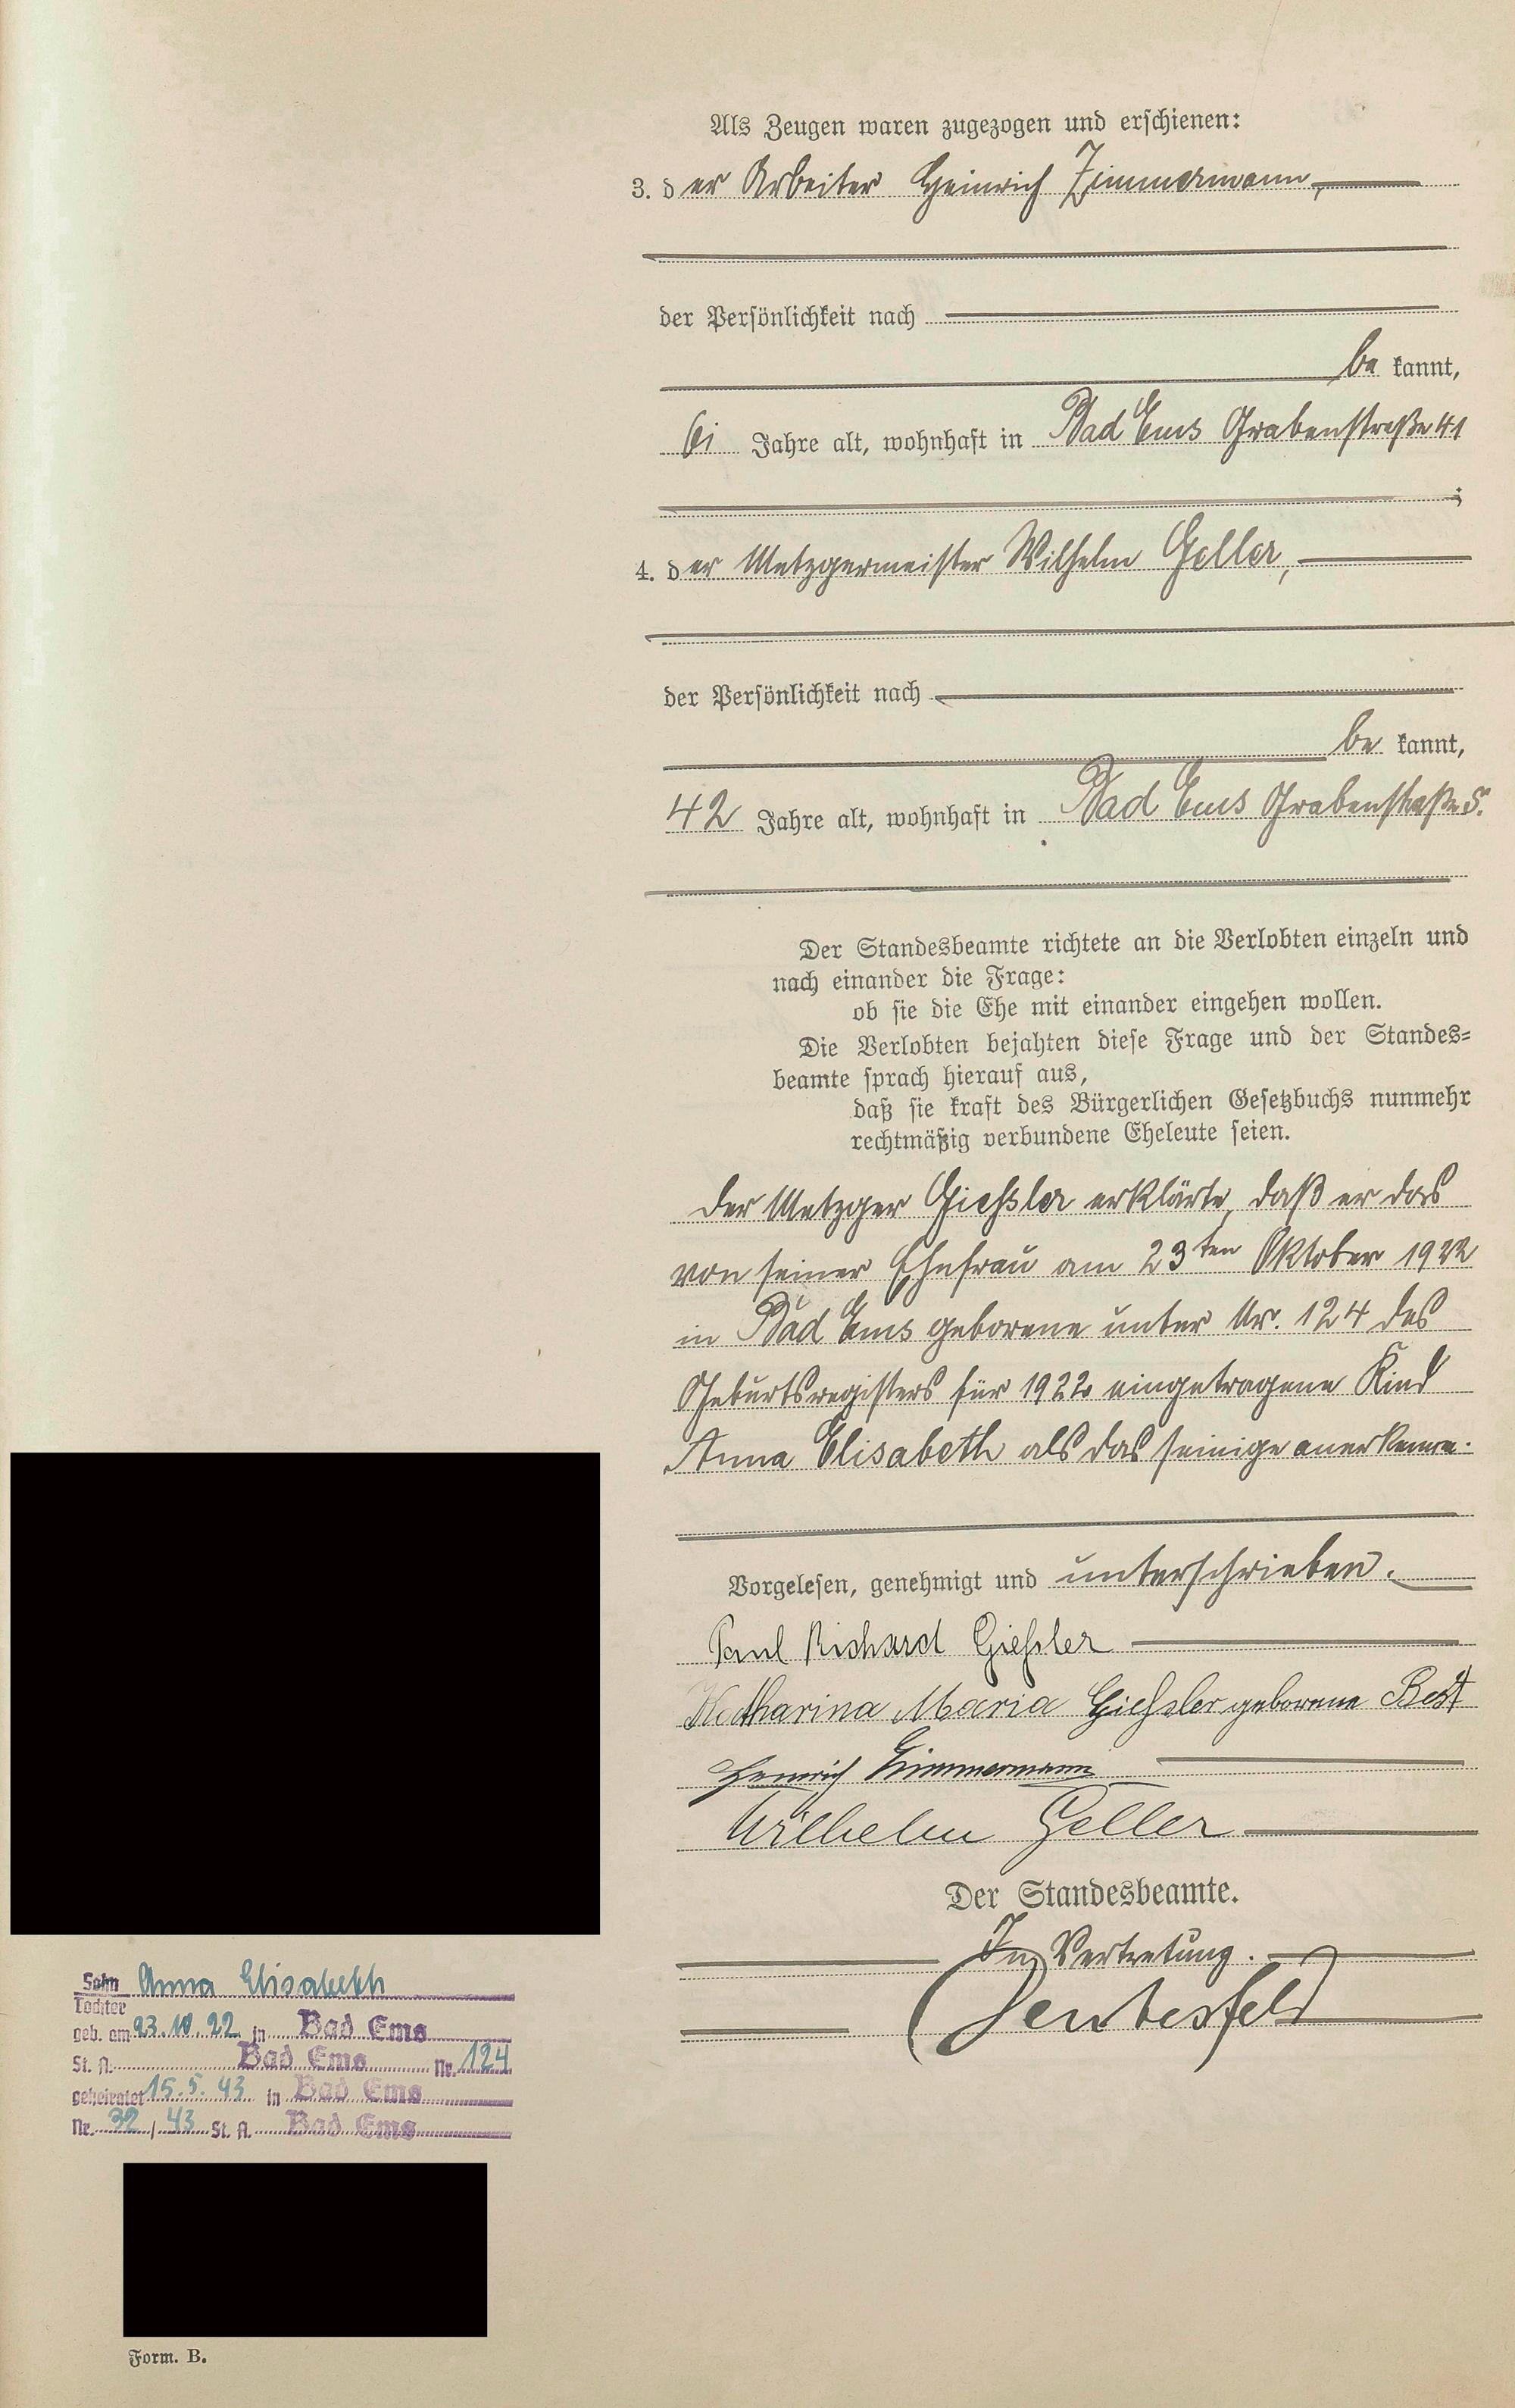 Als Zeugen waren zugezogen und erschienen:
3. der Arbeiter Heinrich Zimmermann,
der Persönlichkeit nach
be kannt,
61 Jahre alt, wohnhaft in Bad Ems Grabenstraße 41
;
4. der Metzgermeister Wilhelm Geller,
der Persönlichkeit nach
be kannt,
42 Jahre alt, wohnhaft in Bad Ems Grabenstraße 5.
Der Standesbeamte richtete an die Verlobten einzeln und
nach einander die Frage:
ob sie die Ehe mit einander eingehen wollen.
Die Verlobten bejahten diese Frage und der Standes-
beamte sprach hierauf aus,
daß sie kraft des Bürgerlichen Gesetzbuchs nunmehr
rechtmäßig verbundene Eheleute seien.
Der Metzger Gießler erklärte, daß er das
von seiner Ehefrau am 23ten Oktober 1922
in Bad Ems geborene unter Nr. 124 des
Geburtsregisters für 1922 eingetragene Kind
Anna Elisabeth als das seinige anerkenne.
Vorgelesen, genehmigt und unterschrieben.
Paul Richard Gießler
Katharina Maria Gießler geborene Best
Heinrich Zimmermann
Wilhelm Geller
Der Standesbeamte.
In Vertretung.
Sohn Anna Elisabeth
Tochter
geb. am 23.10.22 in Bad Ems
St. A. Bad Ems Nr. 124
geheiratet 15.5.43 in Bad Ems
Nr. 32 / 43 St. A. Bad Ems
Form. B.